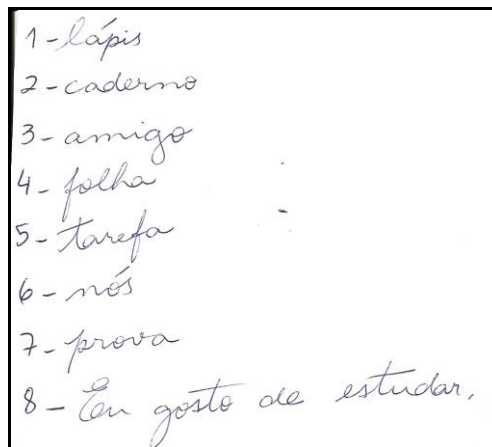 1-lápis
2-caderno
3-amigo
4-folha
5-tarefa
6-nós
7-prova
8-Eu gosto de estudar.